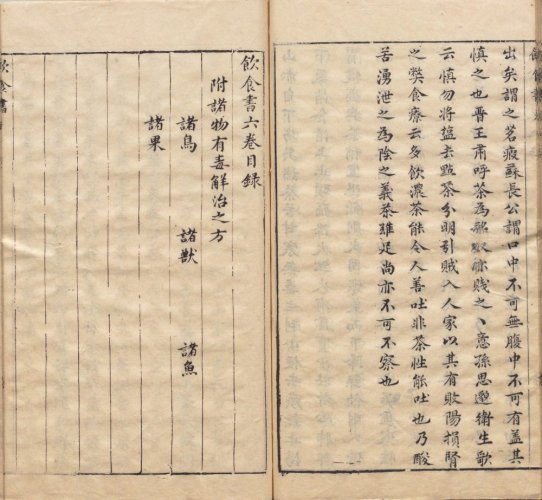 出矣謂之茗疲蘇長公謂口中不可無腹中不可有蓋其
慎之也晉王肅呼茶為酪奴亦賤之丶意孫思邈衛生歌
云慎勿將鹽去點茶分明引賊入人家以其有敗陽損腎
之獘食療云多飲濃茶能令人善吐非茶性能吐也乃酸
苦湧泄之為陰之義茶雖足尚亦不可不察也
飲食書六卷目録
附諸物有毒解治之方
諸鳥 諸獸 諸魚
諸果